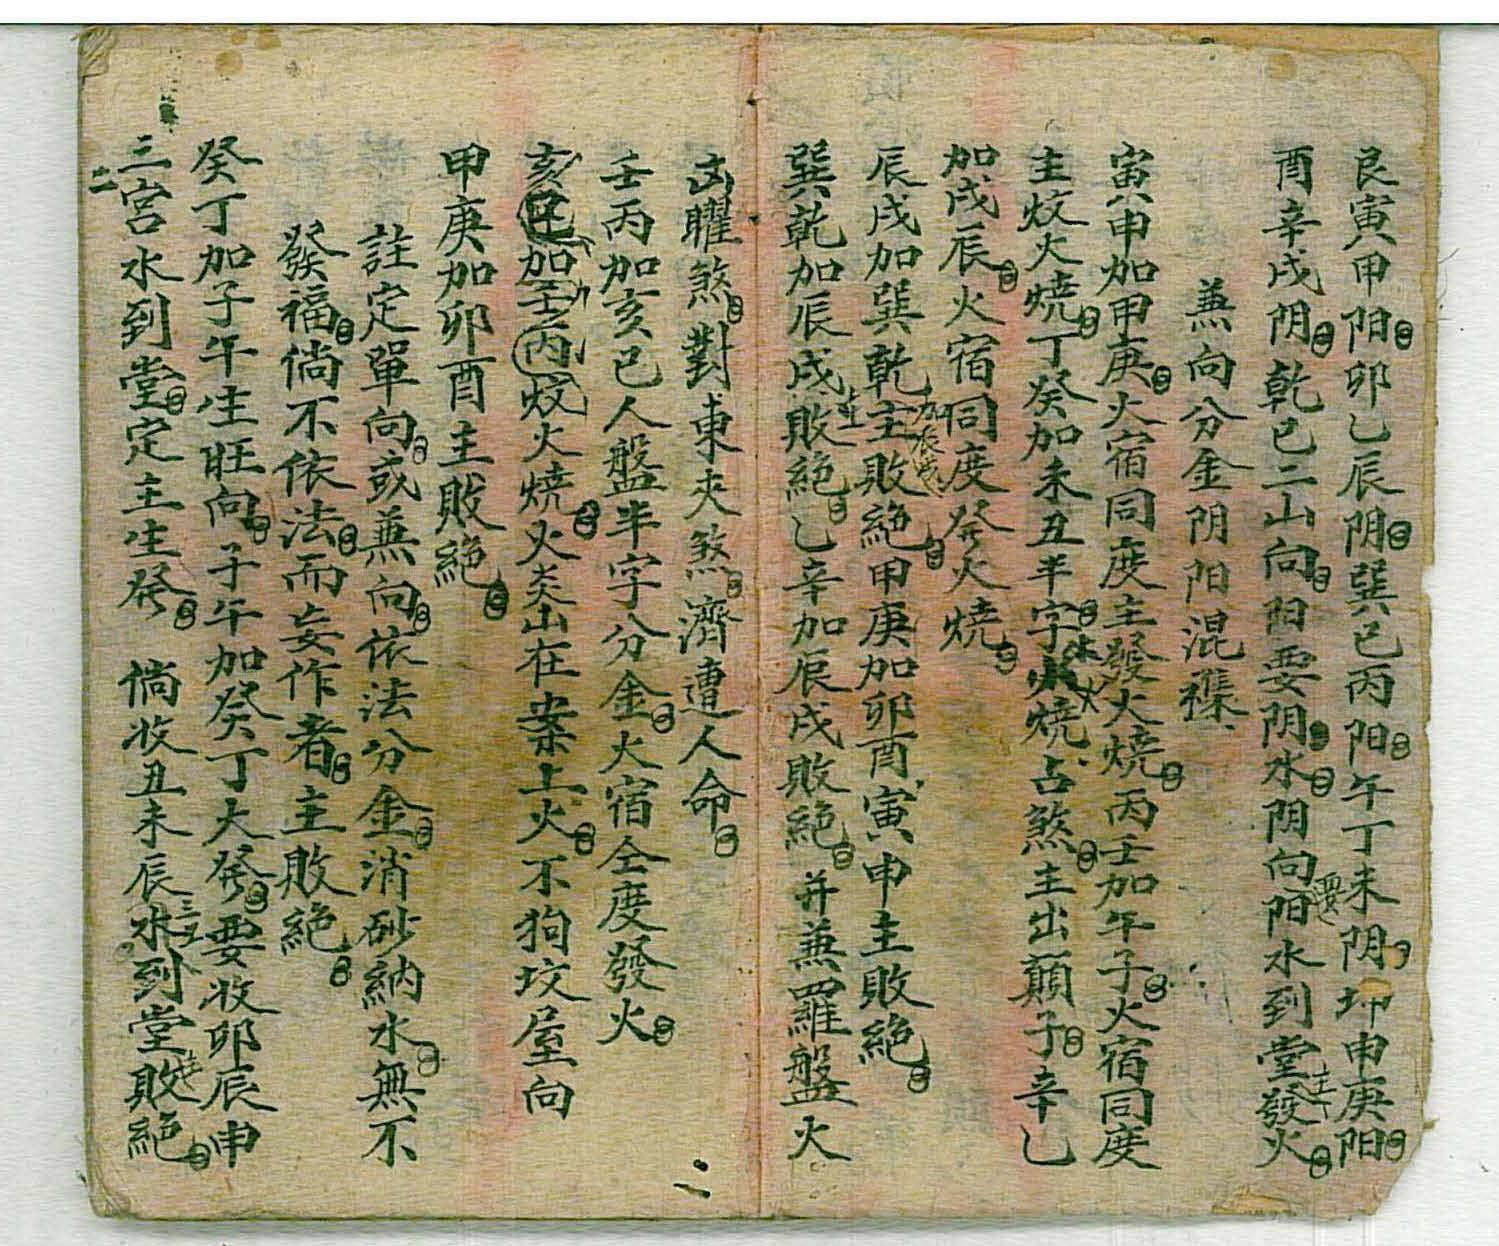 艮寅甲阳卯乙辰阴巽巳丙阳午丁未阴坤申庚阳
酉辛戌阴乾巳二山向阳要阴水阴向要阳水到堂主發火
兼向分金阴阳混襍
寅申加甲庚火宿同度主發火燒丙壬加午子火宿同度
主炆火燒丁癸加未丑半字火燒占煞主出顛子辛乙
加戌辰火宿同度癸火燒
辰戌加巽乾加辰戌主敗絕甲庚加卯酉寅申主敗絕
巽乾加辰戌主敗絕乙辛加辰戌敗絕并兼羅盤火
凶曜煞對東夾煞濟遭人命
壬丙加亥巳人盤半字分金火宿仝度發火
亥巳加壬丙炆火燒火炎山在案上火不狗坟屋向
甲庚加卯酉主敗絕
註定單向或兼向依法分金消砂納水無不
發福倘不依法而妄作者主敗絕
癸丁加子午生旺向子午加癸丁大發要收卯辰申
三宮水到堂定主生發 倘收丑未辰三宮水到堂主敗絕
二